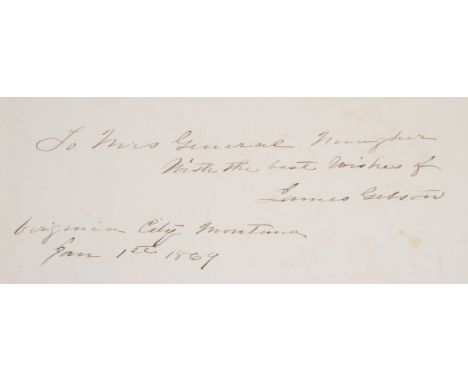 To Mrs General Meagher
With the best Wishes of
James Gibson
Virginia City Montana
Jan 1st 1869